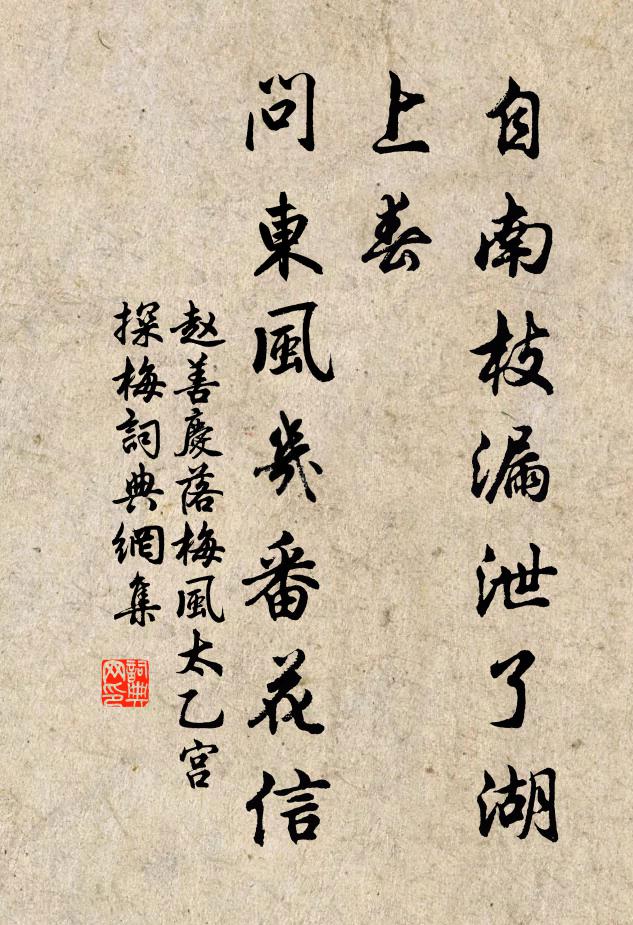 自南枝漏泄了湖
上春
問東風幾番花信
赵善慶落梅風太乙宫
探梅詞典網集
詞典网印